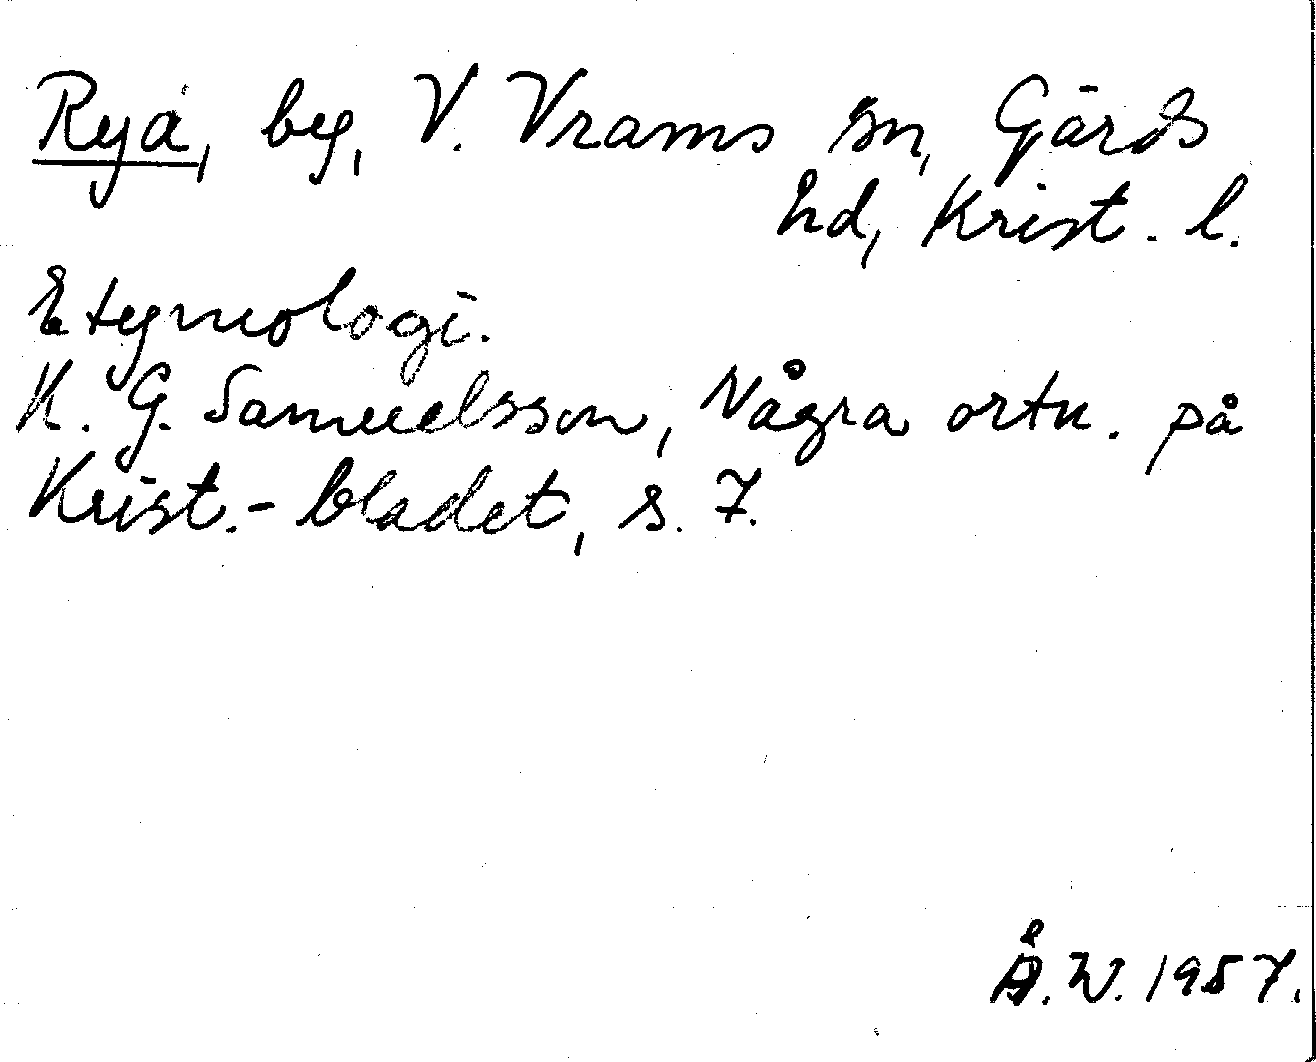 Ryå, by, V. Vrams sn, Gärds
hd, Krist. l.
Etymologi.
K. G. Samuelsson, Några ortn. på
Krist.-bladet, s. 7.
Å. W. 1957.